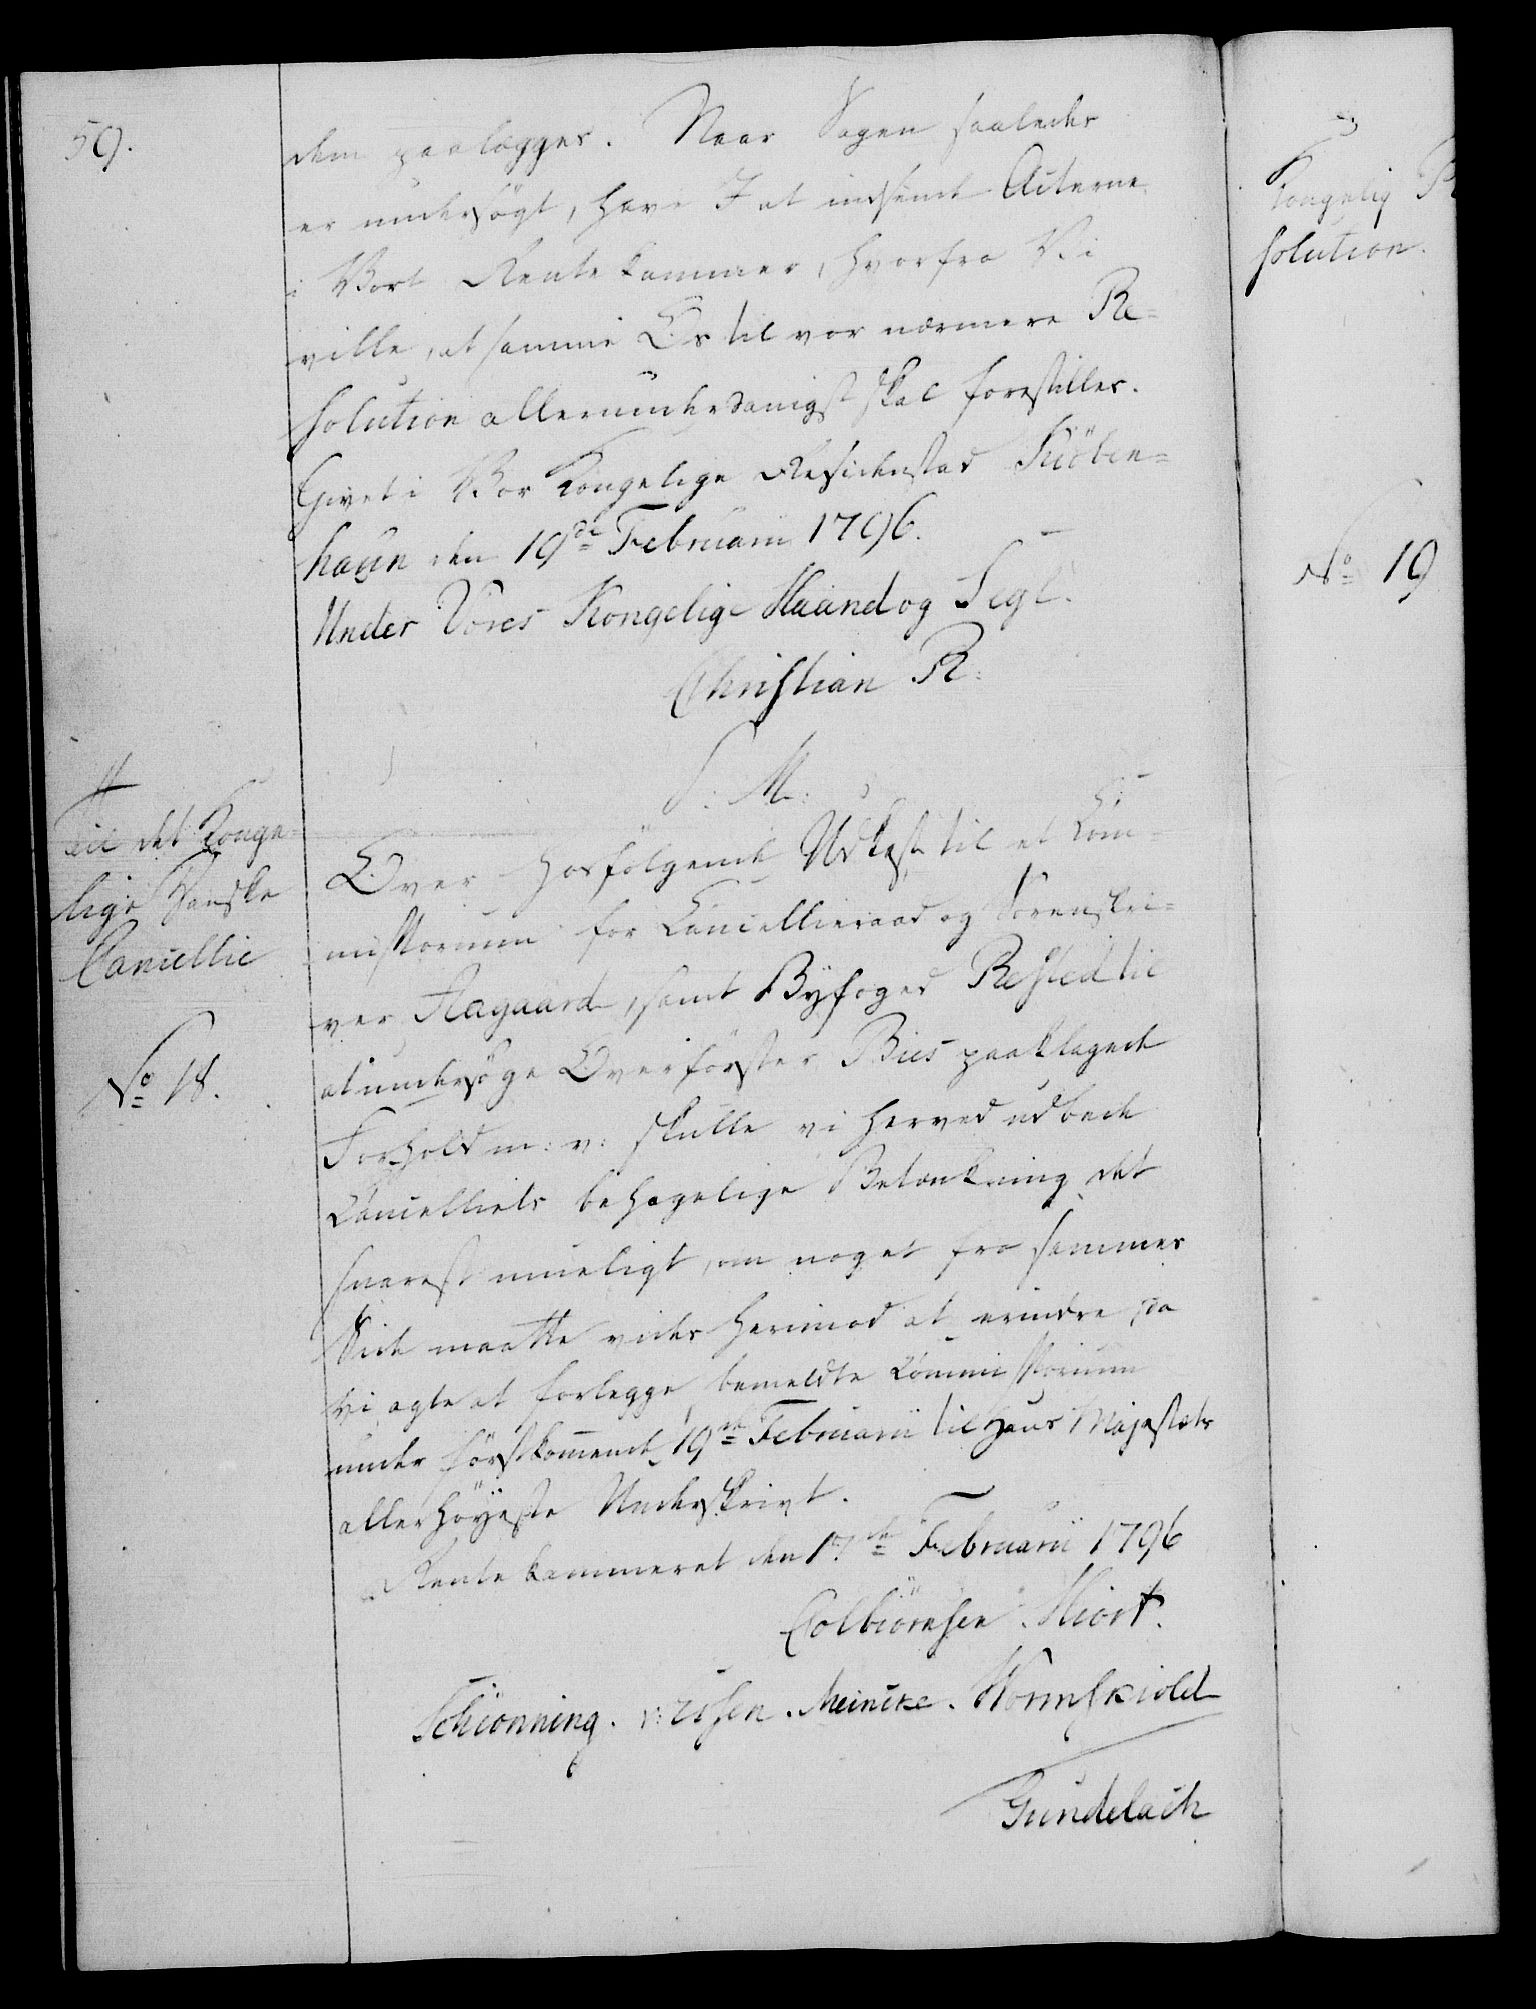 59.
dem paalægges. Naar Sagen saaledes
er undersögt, have I at indsende Acterne
i Vort Rentekammer, hvorfra Vi
ville, at samme Os til vor nærmere Re=
solution allerunderdanigst skal forestilles.
Givet i Vor Kongelige Residenstad Kiöben=
haun den 19de Februarii 1796.
Under Vores Kongelige Haand og Segl.
Christian R:
S: M:
Til det Konge=
lige Danske
Cancellie
No 18.
Over hosfölgende Udkast til et Com=
missorium for Cancellieraad og Sorenskri=
ver Aagaard, samt Byfoged Rested til
at undersöge Overförster Bies paaklagede
Forhold m: v: skulle vi herved udbede
Cancelliets behagelige Betænkning det
snarest mueligt, om noget fra sammes
Side maatte vides herimod at erindre, da
vi agte at forlegge bemeldte Commissorium
under förstkommende 19de Februarii til Hans Majestæts
allerhöyeste Underskrivt.
Rentekammeret den 17de Februarii 1796
Colbiörnsen. Hiort.
Schiönning. Meincke. Wormskiold
Gundelach
Kongelig R
solution.
No 19